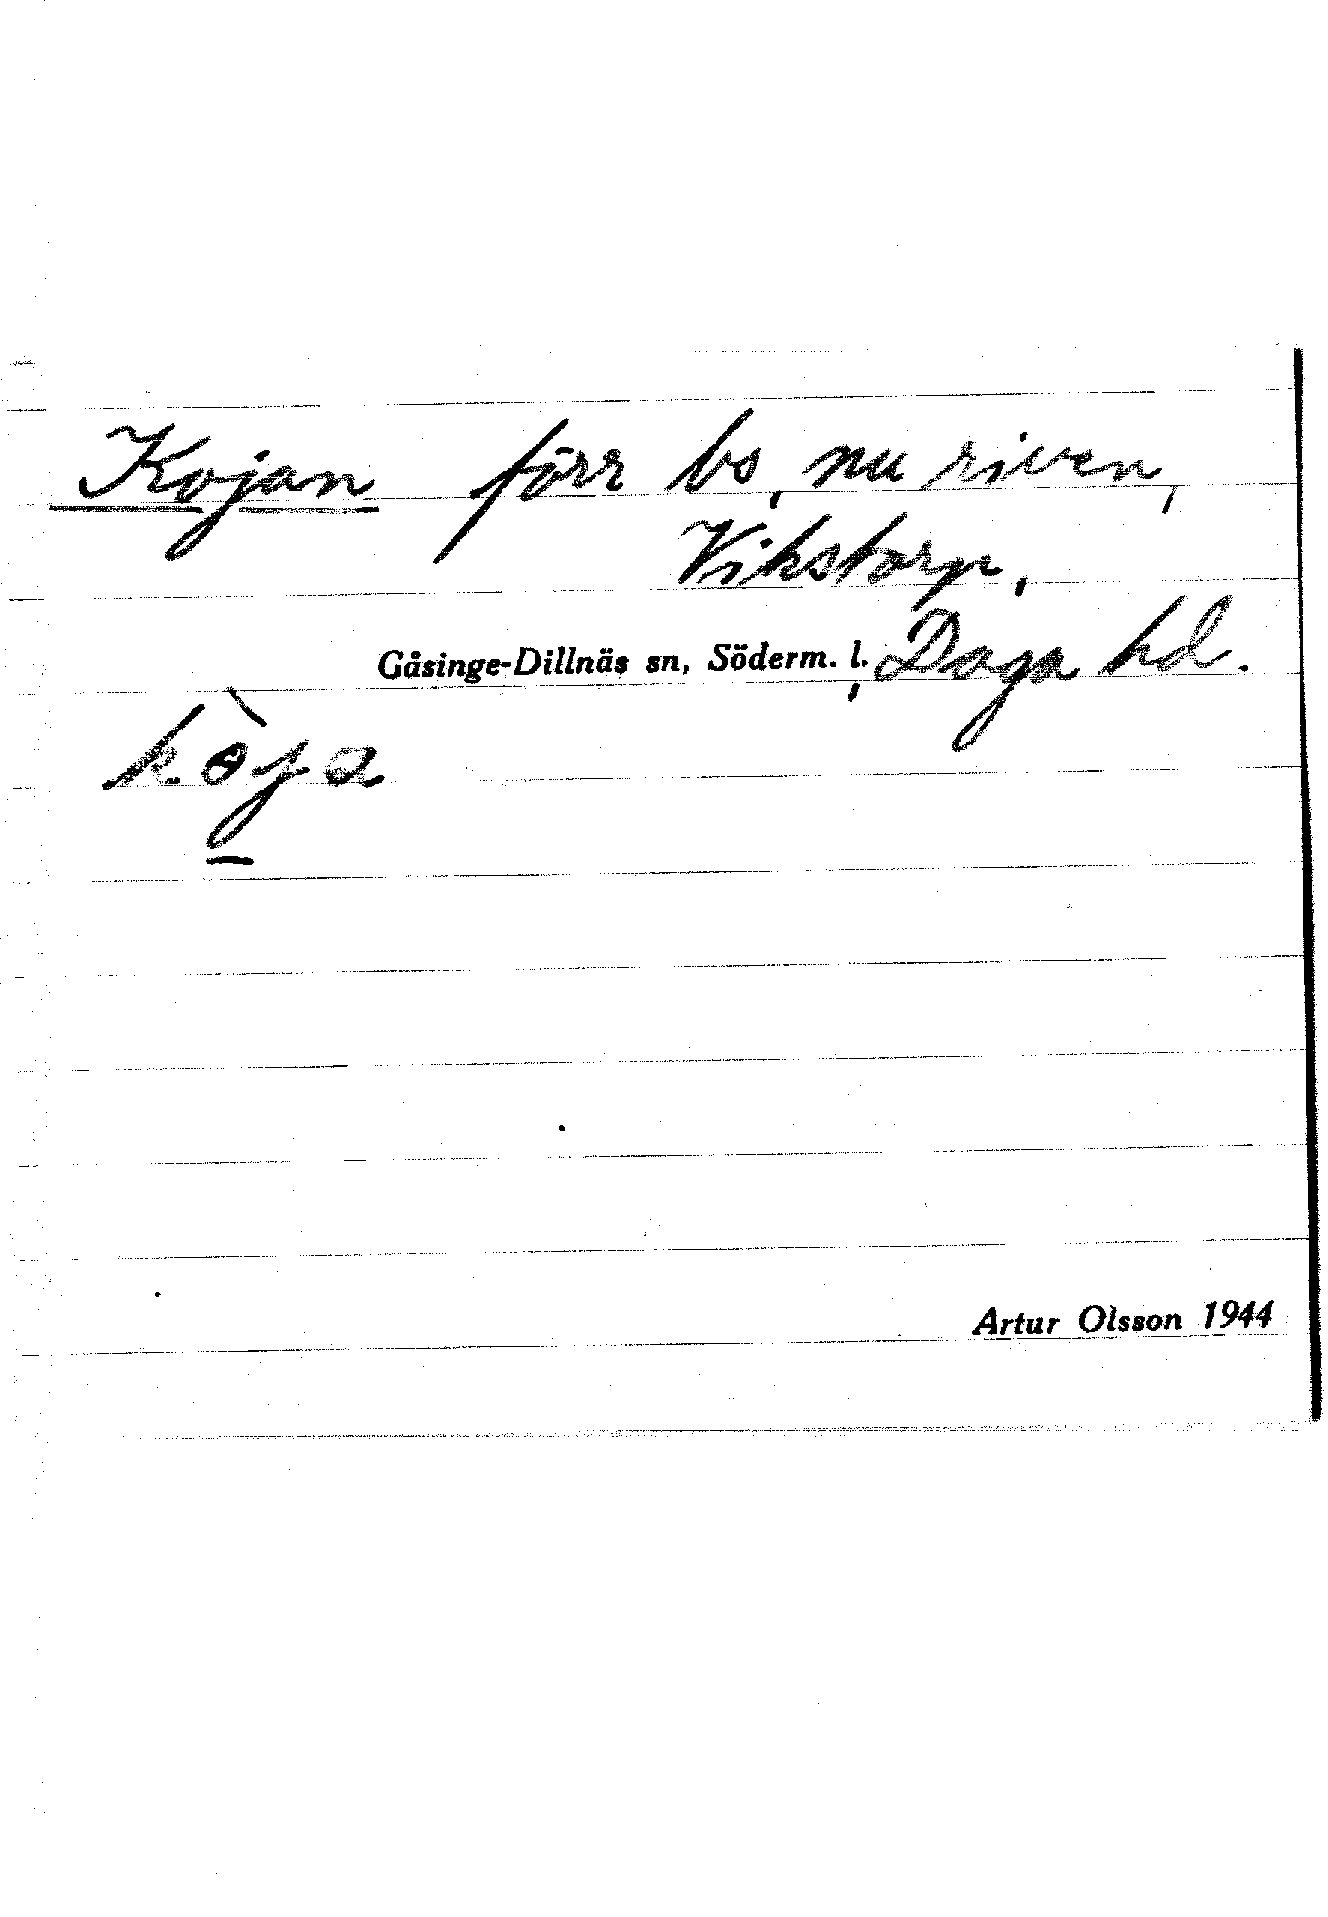 Kojan förr bs, nu riven,
Vikstorp,
Gåsinge-Dillnäs sn, Söderm. l., Daga hd.
kɵ̀ja
Artur Olsson 1944